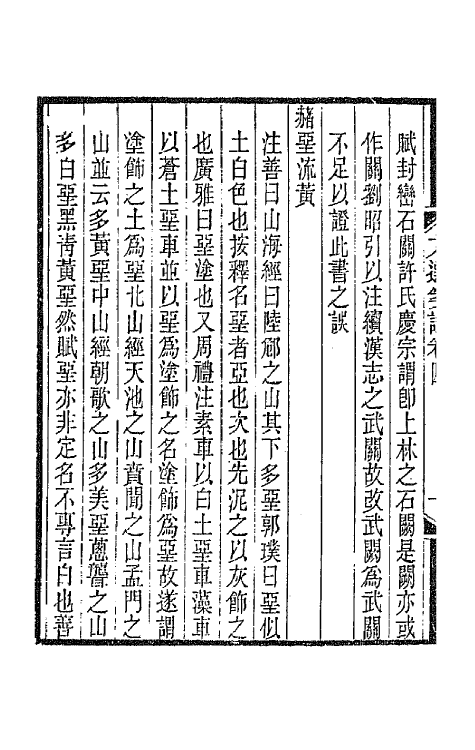 賦封巒石關許氏慶宗謂卽上林之石闕是闕亦或
作關劉昭引以注續漢志之武關故改武闕爲武關
不足以證此書之誤
赭堊流黃
注善曰山海經曰陸郍之山其下多堊郭璞曰堊似
土白色也按釋名堊者亞也次也先泥之以灰飾之
也廣雅曰堊塗也又周禮注素車以白土堊車藻車
以蒼土堊車並以堊爲塗飾之名塗飾爲堊故遂謂
塗飾之土爲堊北山經天池之山賁聞之山孟門之
山並云多黃堊中山經朝歌之山多美堊蔥聾之山
多白堊黑靑黃堊然賦堊亦非定名不專言白也善
文選箋證卷四